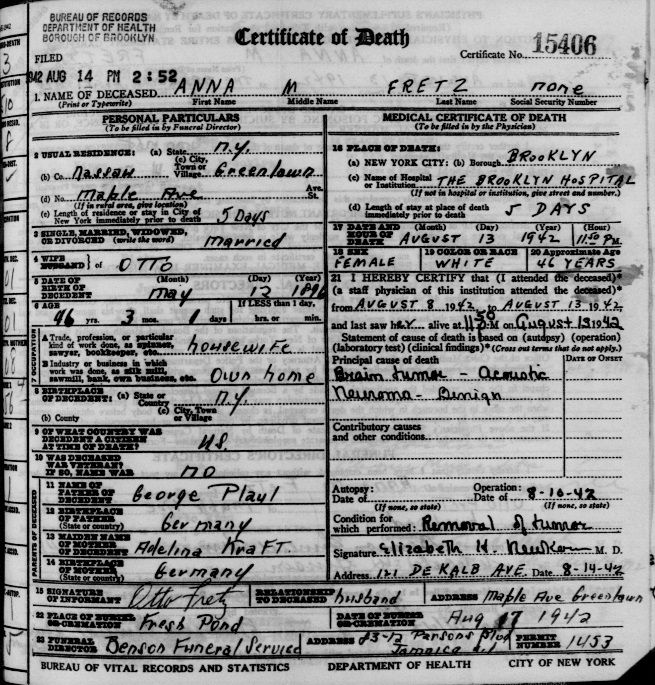 BUREAU OF RECORDS
DEPARTMENT OF HEALTH
BOROUGH OF BROOKLYN
Certificate of Death
FILED
Certificate No. 15406
1942 AUG 14 PM 2:52
1. NAME OF DECEASED ANNA M FRETZ none
(Print or Typewrite) First Name Middle Name Last Name Social Security Number
PERSONAL PARTICULARS
(To be filled in by Funeral Director)
2 USUAL RESIDENCE: (a) State N.Y.
(b) Co. Nassau (c) City, Town or Village Greenlawn
(d) No. Maple Ave Ave. St.
(If in rural area, give location)
(e) Length of residence or stay in City of New York immediately prior to death 5 Days
3 SINGLE, MARRIED, WIDOWED, OR DIVORCED (write the word) married
4 WIFE HUSBAND } of OTTO
5 DATE OF BIRTH OF DECEDENT (Month) May (Day) 12 (Year) 1896
6 AGE 46 yrs. 3 mos. 1 days If LESS than 1 day, hrs. or min.
7 OCCUPATION
A Trade, profession, or particular kind of work done, as spinner, sawyer, bookkeeper, etc. housewife
B Industry or business in which work was done, as silk mill, sawmill, bank, own business, etc. own home
8 BIRTHPLACE OF DECEDENT: (a) State or Country N.Y.
(b) County (c) City, Town or Village
9 OF WHAT COUNTRY WAS DECEDENT A CITIZEN AT TIME OF DEATH? US
10 WAS DECEASED WAR VETERAN? IF SO, NAME WAR no
PARENTS OF DECEASED
11 NAME OF FATHER OF DECEDENT George Playl
12 BIRTHPLACE OF FATHER (State or country) Germany
13 MAIDEN NAME OF MOTHER OF DECEDENT Adelina Kraft.
14 BIRTHPLACE OF MOTHER (State or country) Germany
MEDICAL CERTIFICATE OF DEATH
(To be filled in by the Physician)
16 PLACE OF DEATH:
(a) NEW YORK CITY: (b) Borough BROOKLYN
(c) Name of Hospital or Institution THE BROOKLYN HOSPITAL
(If not in hospital or institution, give street and number.)
(d) Length of stay at place of death immediately prior to death 5 DAYS
17 DATE AND HOUR OF DEATH (Month) AUGUST (Day) 13 (Year) 1942 (Hour) 11:50 PM.
18 SEX FEMALE 19 COLOR OR RACE WHITE 20 Approximate Age 46 YEARS
21 I HEREBY CERTIFY that (I attended the deceased)*
(a staff physician of this institution attended the deceased)*
from AUGUST 8 1942 to AUGUST 13 1942
and last saw her alive at 11:50 P M on August 13 1942
Statement of cause of death is based on (autopsy) (operation)
(laboratory test) (clinical findings)* (Cross out terms that do not apply.)
Principal cause of death DATE OF ONSET
Brain tumor - Acoustic
Neuroma - Benign
Contributory causes
and other conditions
Autopsy: Date of Operation: Date of 8-10-42
(If none, so state) (If none, so state)
Condition for which performed: Removal of tumor
Signature Elizabeth H. M. D.
Address 121 DE KALB AVE Date 8-14-42
15 SIGNATURE OF INFORMANT Otto Fretz RELATIONSHIP TO DECEASED husband ADDRESS Maple Ave Greenlawn
22 PLACE OF BURIAL OR CREMATION Fresh Pond DATE OF BURIAL OR CREMATION Aug 17 1942
23 FUNERAL DIRECTOR Benson Funeral Service ADDRESS 83-12 Parsons Blvd Jamaica L.I PERMIT NUMBER 1453
BUREAU OF VITAL RECORDS AND STATISTICS DEPARTMENT OF HEALTH CITY OF NEW YORK